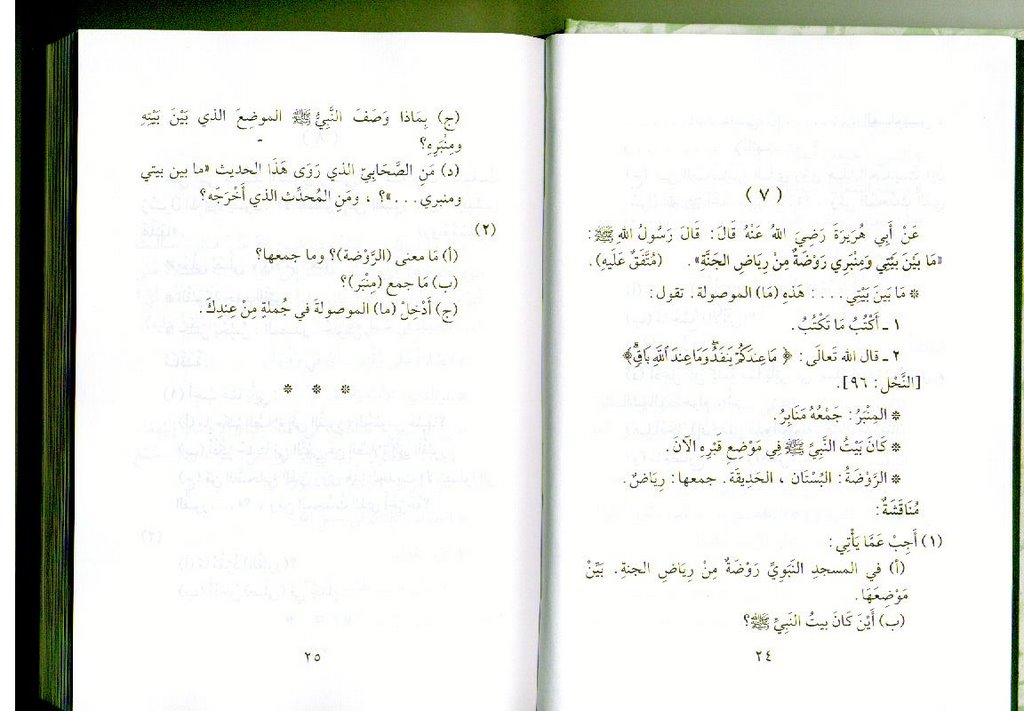 ( ٧ )
عَنْ أَبِي هُرَيرَةَ رَضِيَ اللهُ عَنْهُ قَالَ: قَالَ رَسُولُ اللهِ ﷺ:
«مَا بَيْنَ بَيْتِي وَمِنْبَرِي رَوْضَةٌ مِنْ رِيَاضِ الجَنَّةِ». (مُتَّفَقٌ عَلَيهِ).
* مَا بَينَ بَيْتِي . . . : هَذِهِ (مَا) الموصولة. تقول:
١ ـ أَكْتُبُ مَا تَكْتُبُ.
٢ ـ قال الله تَعالَى: ﴿ مَا عِندَكُمْ يَنفَدُ وَمَا عِندَ ٱللَّهِ بَاقٍ ﴾
[النَّحْل: ٩٦].
* المِنْبَرُ: جَمْعُهُ مَنَابِرُ.
* كَانَ بَيْتُ النَّبِيِّ ﷺ فِي مَوْضِعِ قَبْرِهِ الآنَ.
* الرَّوْضَةُ: البُسْتَان ، الحَدِيقَة. جمعها: رِيَاضٌ.
مُنَاقَشَةٌ:
(١) أَجِبْ عَمَّا يَأْتِي:
(أ) في المسجدِ النَبَوِيِّ رَوْضَةٌ مِنْ رِيَاضِ الجنةِ. بَيِّنْ
مَوْضِعَهَا.
(ب) أَيْنَ كَانَ بيتُ النَبِيِّ ﷺ؟
٢٤
(ج) بِمَاذا وَصَفَ النَّبِيُّ ﷺ الموضِعَ الذي بَيْنَ بَيْتِهِ
ومِنْبَرِهِ؟
(د) مَنِ الصَّحَابِيّ الذي رَوَى هَذَا الحديث «ما بين بيتي
ومنبري. . .»؟ ، ومَنِ المُحدِّث الذي أَخْرَجَه؟
(٢)
(أ) مَا معنى (الرَّوْضة)؟ وما جمعها؟
(ب) مَا جمع (مِنْبَر)؟
(ج) أَدْخِلْ (ما) الموصولةَ في جُملةٍ مِنْ عِندِكَ.
* * *
٢٥